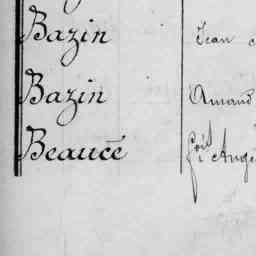 Bazin Jean
Bazin Amand
Beaucé Ange